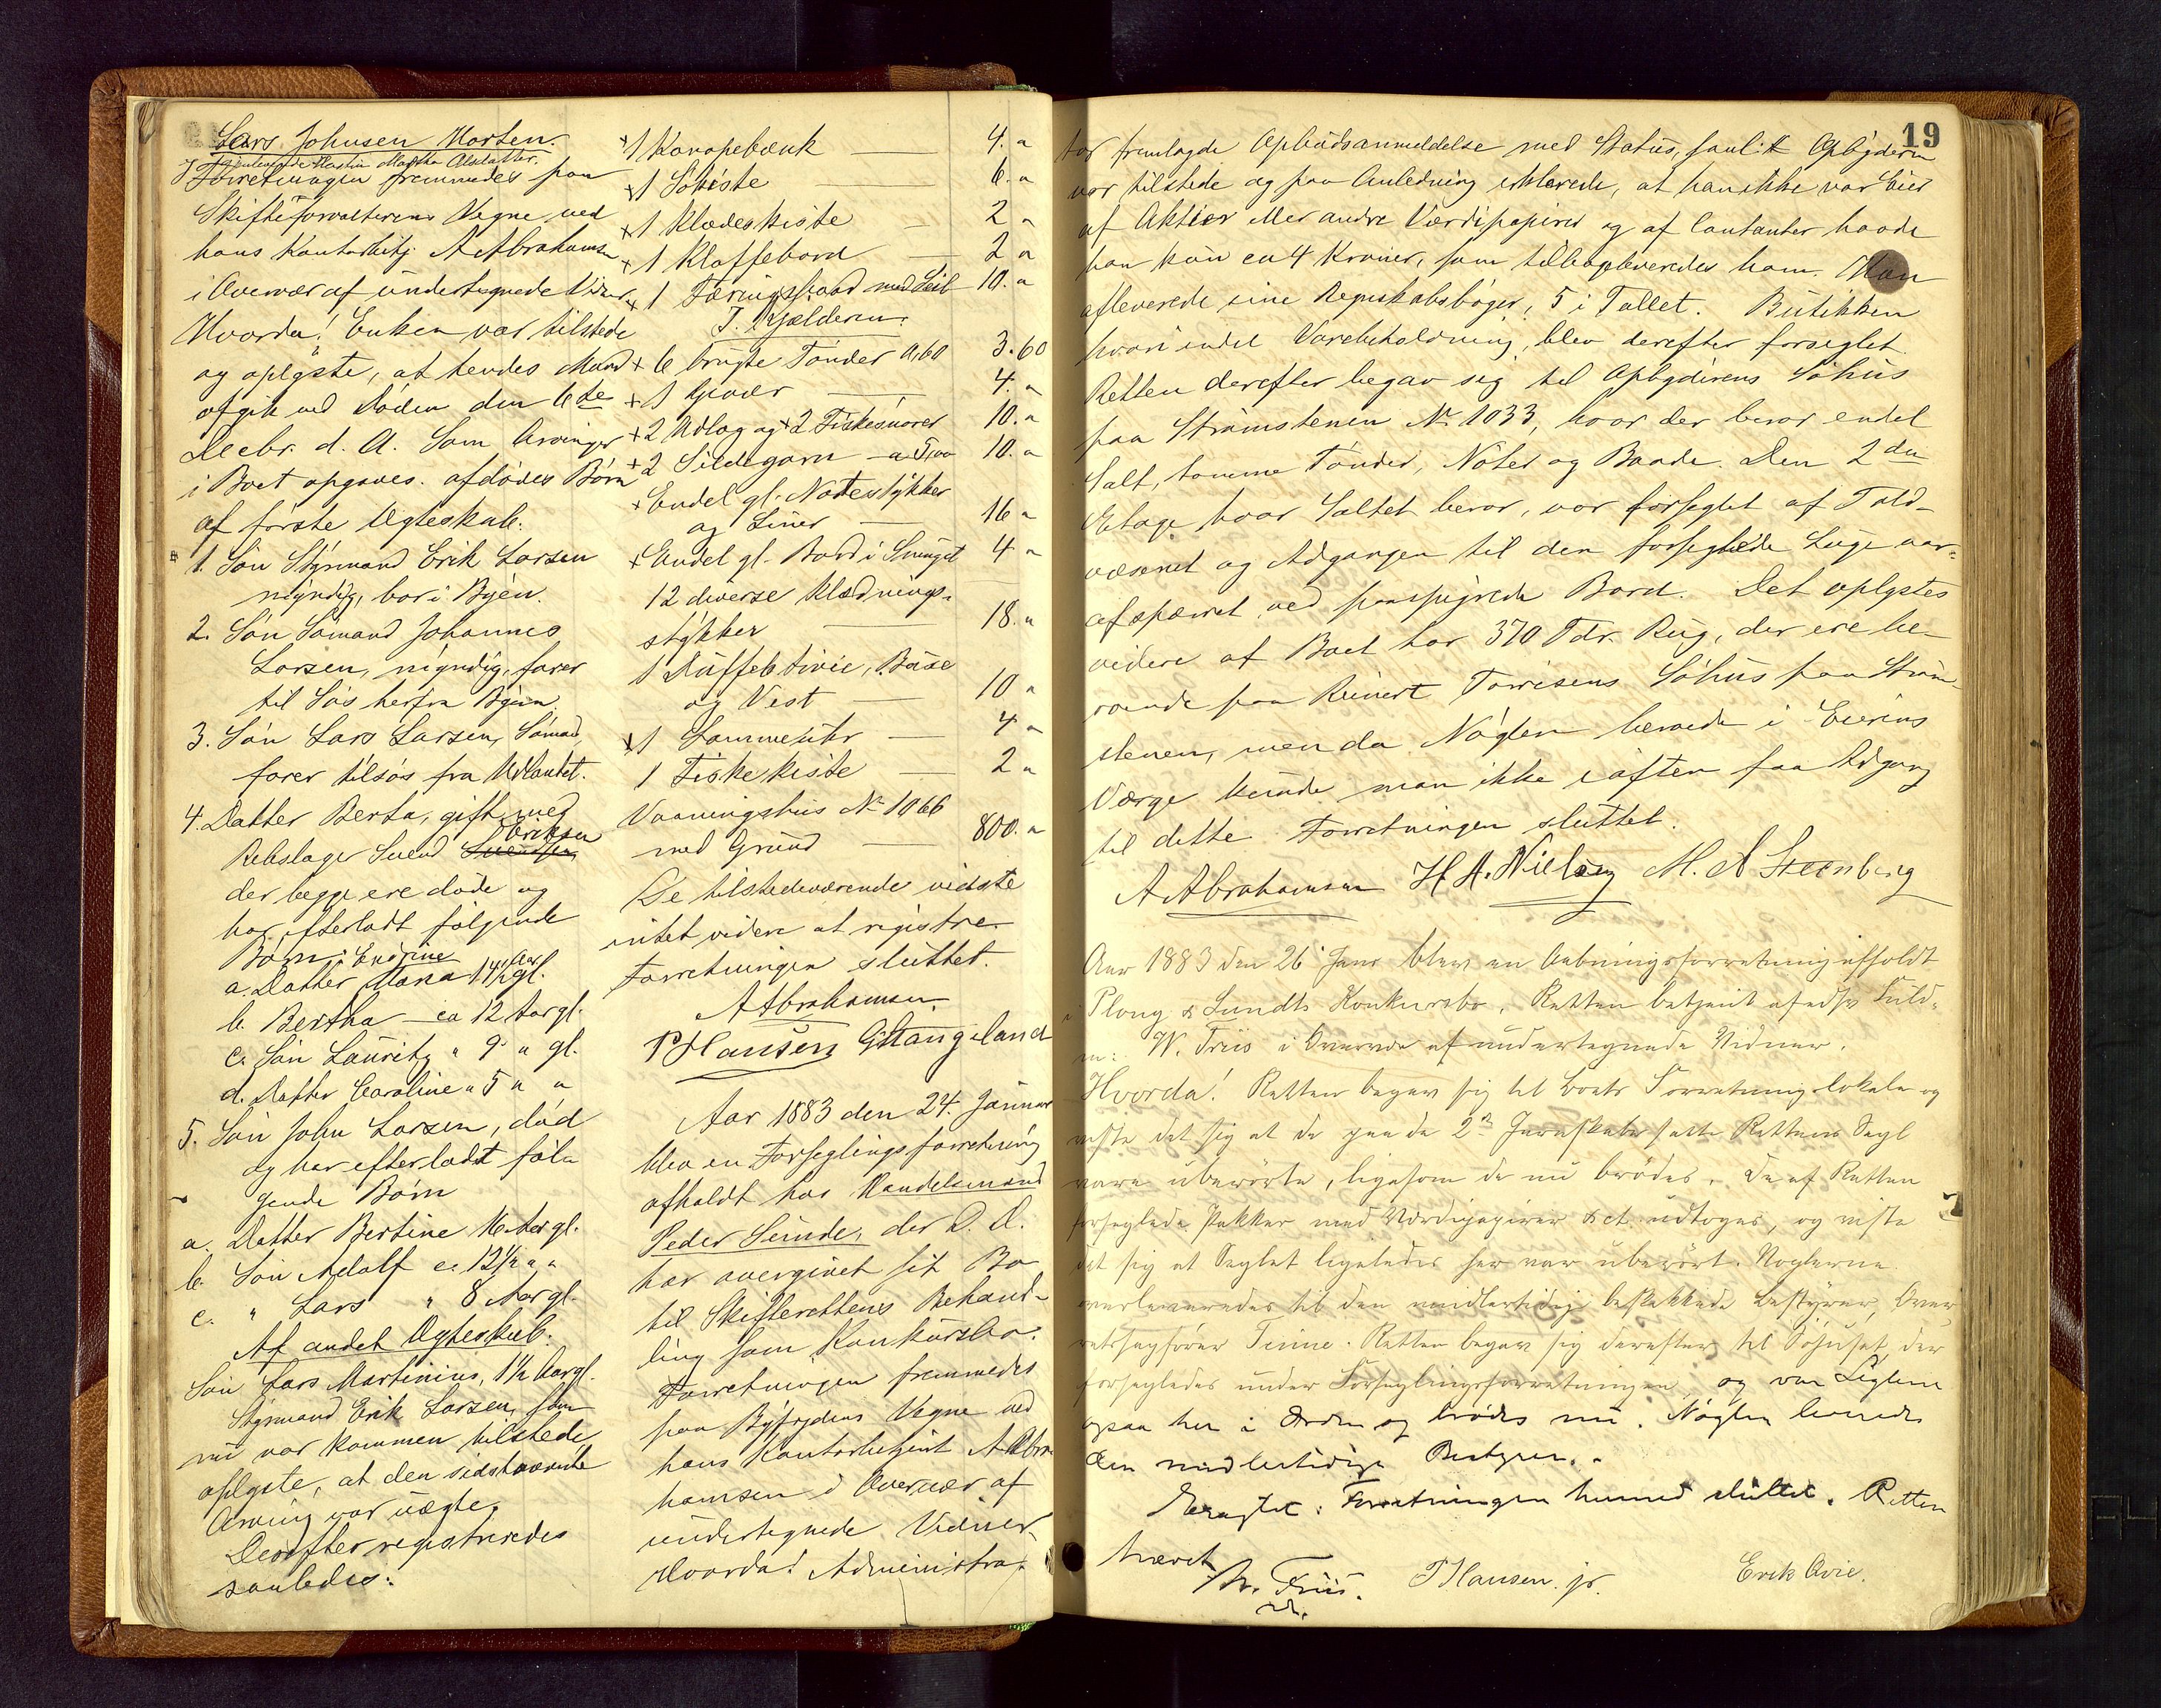 Lars Johnsen Marken.
Gjenlevende Hustru Martha Olsdatter.
Forretningen fremmedes paa
Skifteforvalterens Vegne ved
hans Kontorbetj A Abrahamsen
i Overvær af undertegnede Vidner.
Hvorda! Enken var tilstede
og oplyste, at hendes Mand
afgik ved Døden den 6te
Decbr. d. A. Som Arvinger
i Boet opgaves. afdødes Børn
af første Ægteskab:
1. Søn Styrmand Erik Larsen
myndig, bor i Byen.
2. Søn Sømand Johannes
Larsen, myndig, farer
til Søs herfra Byen.
3. Søn Lars Larsen, Sømand,
farer tilsøs fra Udlandet.
4. Datter Berta, gift med
Eriksen
Rebslager Svend Svendsen
der begge ere døde og
har efterladt følgende
Børn: Endrine
a. Datter Maria 14½ Aar gl.
b. Bertha — ca 12 Aar gl.
c. Søn Lauritz " 9 " gl.
d. Datter Caroline " 5 " "
5. Søn John Larsen, død
og har efterladt føl-
gende Børn
a. Datter Bertine 16 Aar gl.
b. Søn Adolf ca 12½ " "
c. " Lars " 8 Aar gl.
Af andet Ægteskab.
Søn Lars Martinius, 1½ Aar gl.
Styrmand Erik Larsen, som
nu var kommen tilstede
oplyste, at den sidstnævnte
Arving var uægte.
Derefter registreredes
saaledes:
1 Kanapebænk — 4. "
1 Søkiste — 6. "
1 Klædeskiste — 2 "
1 Klaffebord — 2 "
1 Færingsbaad med Seil 10. "
I. Kjælderen.
6 brugte Tønder a, 60 3.60
1 — 4. "
2 Udlag og 2 Fiskesnører 10. "
2 Sildegarn 10. "
Endel gl. Notestykker
og Liner — 16 "
Endel gl. Bord i Smuget 4 "
12 diverse Klædnings-
stykker — 18. "
1 Duffels Trøie, Buxe
og Vest — 10 "
1 Lommeuhr — 4 "
1 Fiskekiste — 2 "
Vaaningshus No 1066
med Grund — 800. "
De tilstedeværende vidste
intet videre at registre.
Forretningen sluttet.
A Abrahamsen
P Hansen G Stangeland
Aar 1883 den 24. Januar
blev en Forseglingsforretning
afholdt hos Handelsmand
Peder Sunde, der D. D.
har overgivet sit Bo
til Skifterettens Behand-
ling som Konkursbo.
Forretningen fremmedes
paa Byfogdens Vegne ved
hans Kontorbetjent A Abra-
hamsen i Overvær af
undertegnede Vidner.
Hvorda! Administra-
19
tor fremlagde Opbudsanmeldelse med Status, Opbyderen
var tilstede og paa Anledning erklærede, at han ikke var Eier
af Aktier eller andre Værdipapirer og af Contanter havde
han kun ca 4 Kroner, som tilbageleveredes ham. Han
afleverede sine Regnskabsbøger, 5 i Tallet. Butikken
hvori endel Varebeholdning, blev derefter forseglet.
Retten derefter begav sig til Opbyderens Søhus
paa Strømstenen No 1033, hvor der beror endel
Salt, tomme Tønder, Nøter og Baade. Den 2den
Etage hvor Saltet beror, var forseglet af Told-
væsenet og Adgangen til den forseglede Luge var
afspærret ved paaspigrede Bord. Det oplystes
videre at Boet har 370 Tdr. Rug, der ere be-
roende paa Reinert Torrisens Søhus paa Strøm-
stenen, men da Nøglen beroede i Eierens
Værge kunde man ikke iaften faa Adgang
til dette. Forretningen sluttet.
A Abrahamsen H. A. Nielsen M. A Steenberg
Aar 1883 den 26 Janr blev en Aabningsforretning afholdt
i Ploug & Sundts Konkursbo. Retten betjent af edsv Fuld-
m: W. Friis i Overvær af undertegnede Vidner.
Hvorda! Retten begav sig til Boets Forretningslokale og
viste det sig at de paa de 2de satte Rettens Segl
vare uberørte, ligesom de nu brødes. De af Retten
forseglede Pakker med Værdipapirer &ct. udtoges, og viste
det sig at Seglet ligeledes her var uberørt. Nøglerne
overleveredes til den midlertidige beskikkede Bestyrer, Over-
retssagfører Tinne. Retten begav sig derefter til Søhuset, der
forsegledes under Forseglingsforretningen, og var Seglene
ogsaa her i Orden og brødes nu. Nøglen leveredes
den midlertidige Bestyrer.
Forretningen hermed sluttet. Retten
hævet
W. Friis. P Hansen. jr. Erik Qvie.